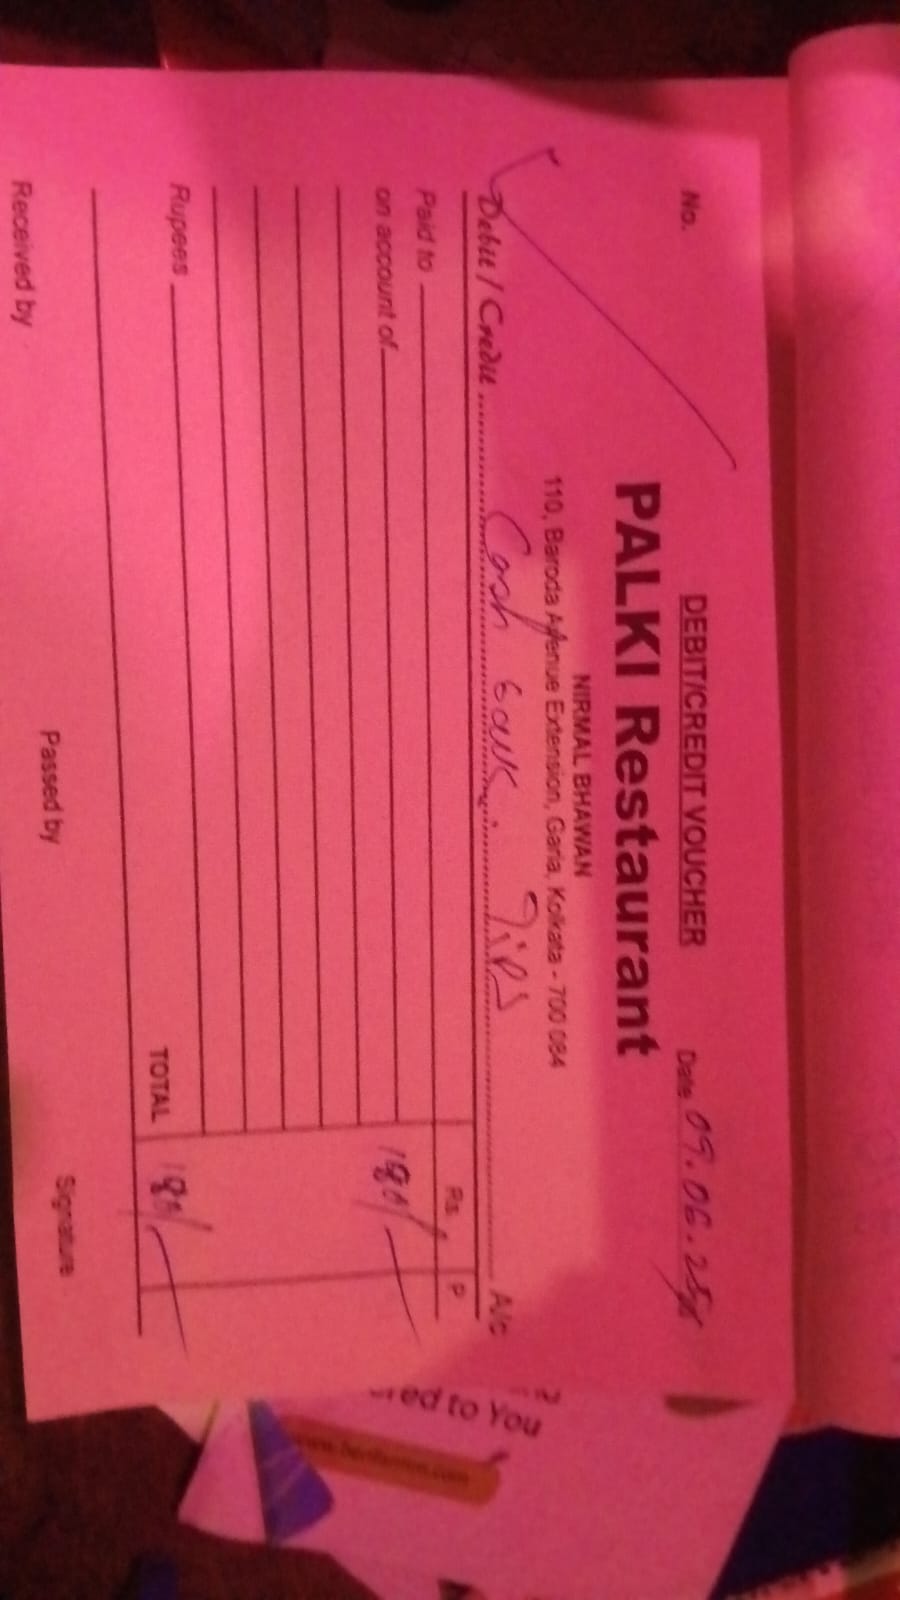 DEBIT/CREDIT VOUCHER
No.
Date 09.06.25
PALKI Restaurant
NIRMAL BHAWAN
110, Baroda Avenue Extension, Garia, Kolkata - 700 084
Debit / Credit Cash Tips A/c
Paid to
Rs. P
on account of
Rupees
TOTAL
Received by Passed by Signature
red to You